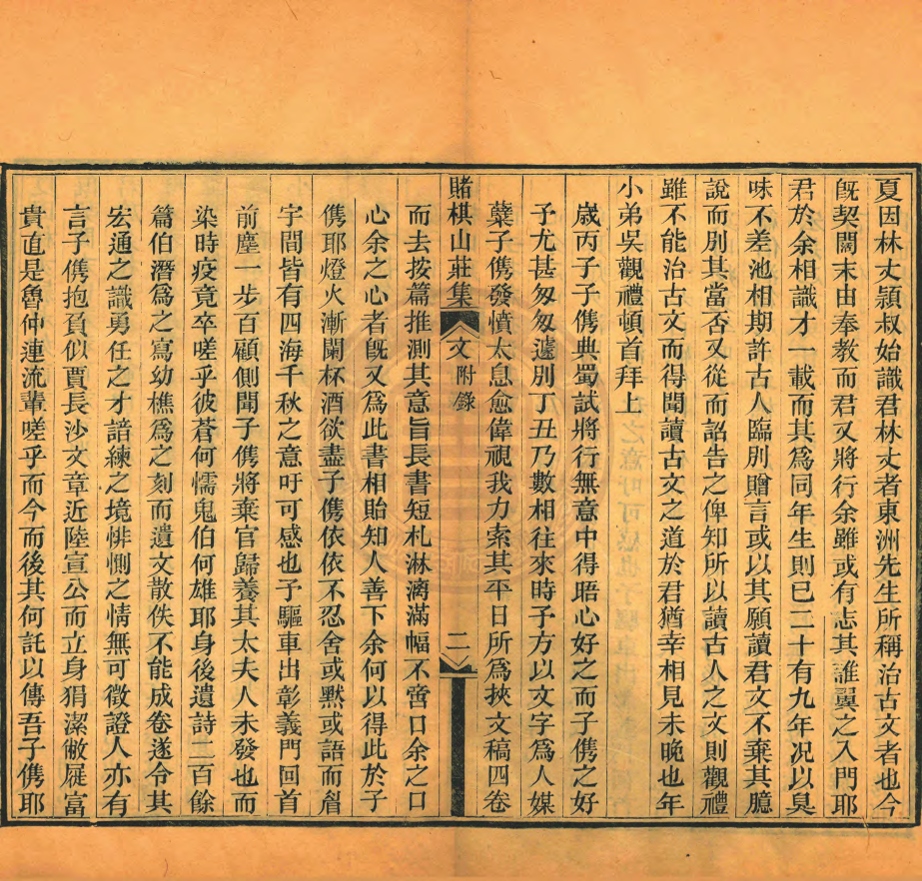 夏因林丈穎叔始識君林丈者東洲先生所稱治古文者也今
旣契闊末由奉教而君又將行余雖或有志其誰翼之入門耶
君於余相識才一載而其爲同年生則已二十有九年況以臭
味不差池相期許古人臨別贈言或以其願讀君文不棄其臆
說而別其當否又從而詔告之俾知所以讀古人之文則觀禮
雖不能治古文而得聞讀古文之道於君猶幸相見未晚也年
小弟吳觀禮頓首拜上
歲丙子子儁典蜀試將行無意中得晤心好之而子儁之好
予尤甚匆匆遽別丁丑乃數相往來時予方以文字爲人媒
糵子儁發憤太息愈偉視我力索其平日所爲挾文稿四卷
賭棋山莊集 文附錄 二
而去按篇推測其意旨長書短札淋漓滿幅不啻口余之口
心余之心者旣又爲此書相貽知人善下余何以得此於子
儁耶燈火漸闌杯酒欲盡子儁依依不忍舍或默或語而眉
宇間皆有四海千秋之意吁可感也予驅車出彰義門回首
前塵一步百顧側聞子儁將棄官歸養其太夫人未發也而
染時疫竟卒嗟乎彼蒼何懦鬼伯何雄耶身後遺詩二百餘
篇伯潛爲之寫幼樵爲之刻而遺文散佚不能成卷遂令其
宏通之識勇任之才諳練之境悱惻之情無可徵證人亦有
言子儁抱負似賈長沙文章近陸宣公而立身狷潔敝屣富
貴直是魯仲連流輩嗟乎而今而後其何託以傳吾子儁耶